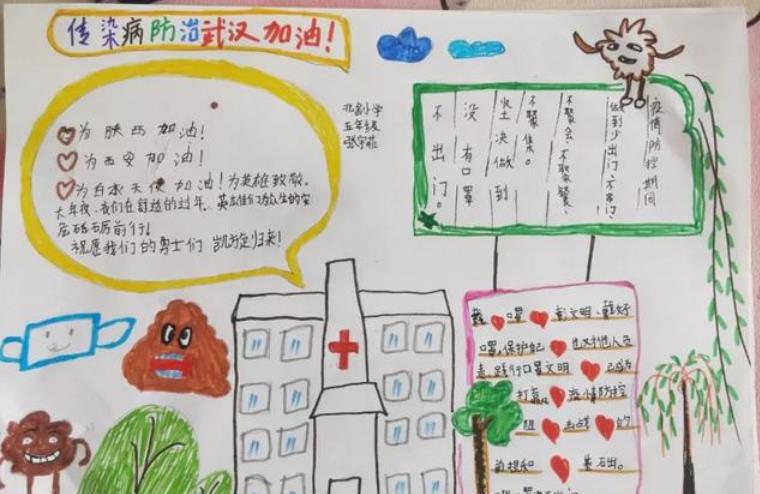 传染病防治武汉加油!
为陕西加油!
为西安加油!
为白衣天使加油!为英雄致敬。
大年夜,我们在舒适的过年、英雄们放众生的安
危砥砺前行!
祝愿我们的勇士们 凯旋归来!
五年级
疫情防控期间
做到少出门不串门、
不聚会、不聚餐、
不聚集。
坚决做到
没有口罩
不出门。
戴口罩 彰文明、戴好
口罩,保护自己 也对他人负
责,践行口罩文明 已成为
打赢 疫情防控
阻击战 的
前提和 基石出。